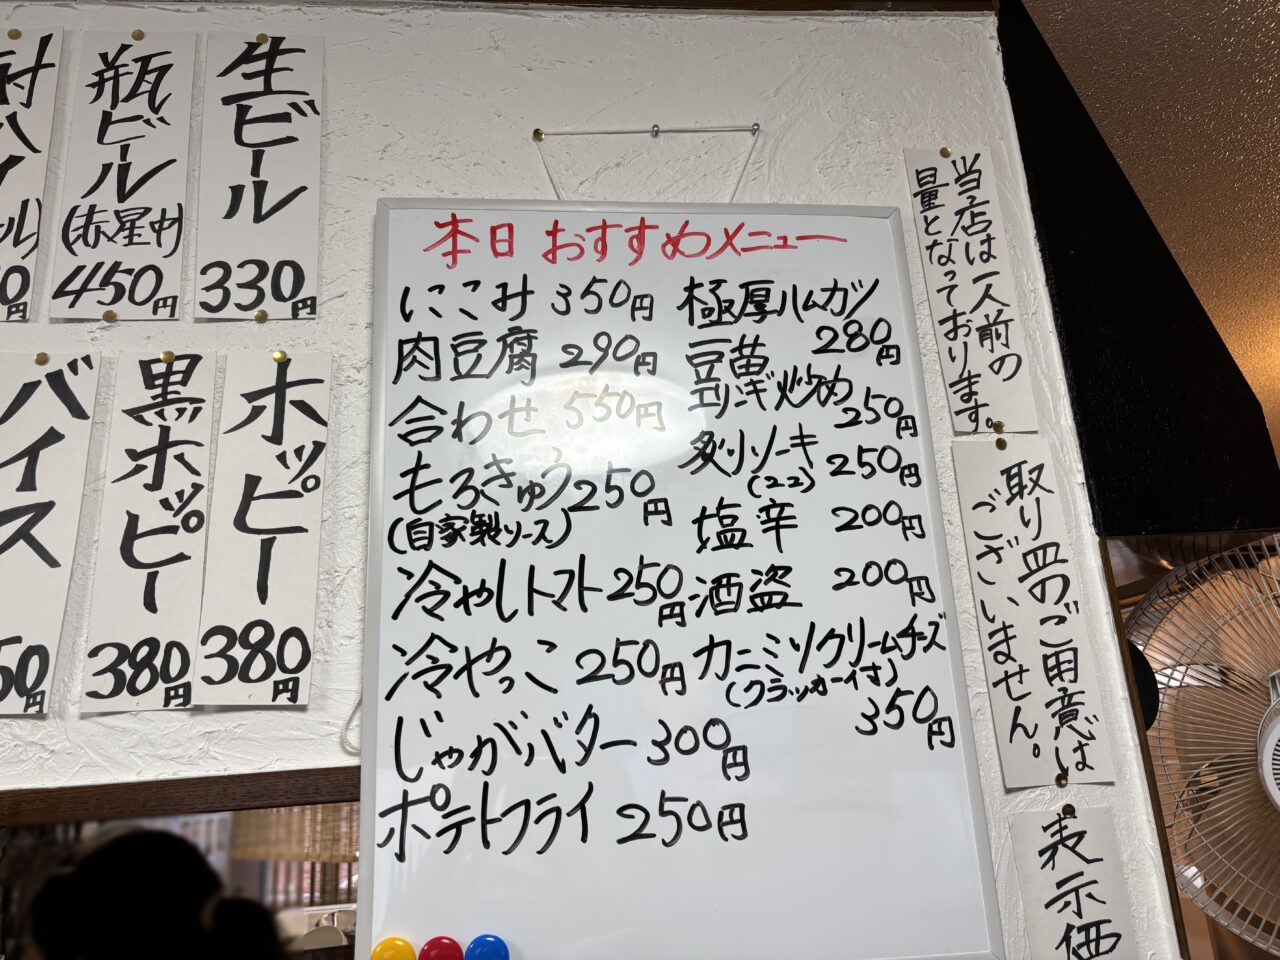 酎ハイ
瓶ビール
(赤星中)
450円
生ビール
330円
バイス
黒ホッピー
380円
ホッピー
380円
本日おすすめメニュー
にこみ 350円
肉豆腐 290円
合わせ 550円
もろきゅう 250円
(自家製ソース)
冷やしトマト 250円
冷やっこ 250円
じゃがバター 300円
ポテトフライ 250円
極厚ハムカツ
280円
豆苗
エリンギ炒め
250円
炙りソーキ 250円
(ココ)
塩辛 200円
酒盗 200円
カニミソクリームチーズ
(クラッカー付)
350円
当店は一人前の
量となっております。
取り皿のご用意は
ございません。
表示価